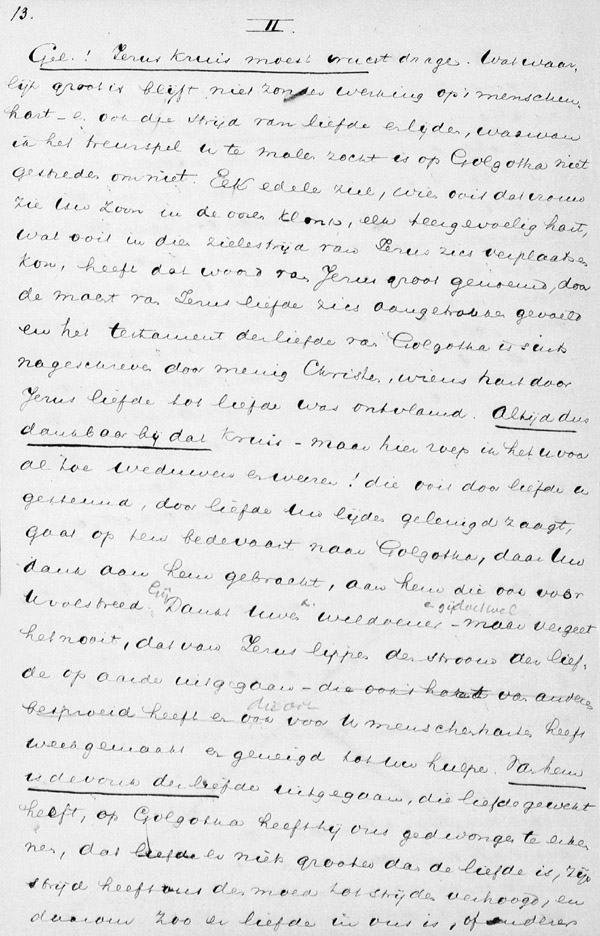 13.
II
Gel.! Jezus kruis moest vrucht drage. Wat waar,
lijk groot is blijft niet zonder werking op 's menschen
hart – e ook die strijd van liefde e lijden, waarvan
ik het treurspel u te malen zocht is op Golgotha niet
gestreden om niet. Elk edele ziel, wien ooit dat vrouw
zie Uw zoon in de ooren klonk, elk teergevoelig hart,
wat ooit in dien zielestrijd van Jezus zich verplaatsen
kon, heeft dat woord van Jezus groot genoemd, door
de macht van Jezus liefde zich aangetrokken gevoeld
en het testament der liefde van Golgotha is
nageschreven door menig Christen, wiens hart door
Jezus liefde tot liefde was ontvlamd. Altijd dus
dankbaar bij dat kruis – maar hier roep ik het u voor
al toe weduwen e weezen! die ooit door liefde u
gesteund, door liefde Uw lijden gelenigd zaagt,
gaat op ten bedevaart naar Golgotha, daar Uw
dank aan hem gebracht, aan hem die ook voor
U volstreed. Dankt Uwe weldoeners – maar vergeet
het nooit, dat van Jezus lippen der stroom der lief-
de op aarde uitgegaan – die ook 't hart van anderen
besproeid heeft e ook voor U menschenharten heeft
die ook
week gemaakt en geneigd tot Uw hulpe. Van hem
is de vonk der liefde uitgegaan, die liefde gewekt
heeft, op Golgotha heeft hij ons gedwongen te erken
nen, dat liefde er niets grooter dan de liefde is, Zijn
strijd heeft ons den moed tot strijden verhoogd, en
daarom zoo er liefde in ons is, of anderen